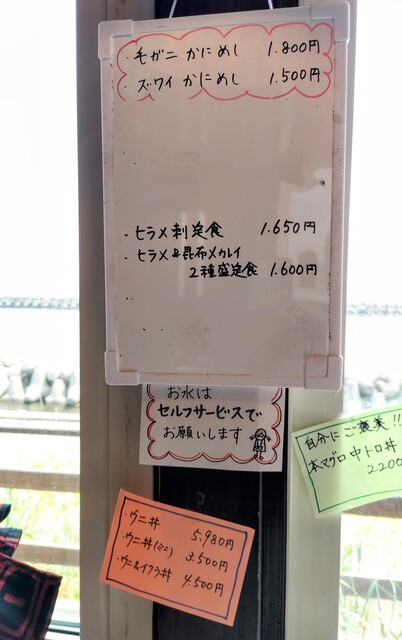 ・毛ガニ かにめし 1.800円
・ズワイ かにめし 1.500円
・ヒラメ刺定食 1.650円
・ヒラメ&昆布〆カレイ
2種盛定食 1.600円
お水は
セルフサービスで
お願いします
自分にご褒美!!
本マグロ中トロ丼
2200
・ウニ丼 5.980円
・ウニ丼(ミニ) 3.500円
・ウニ&イクラ丼 4.500円